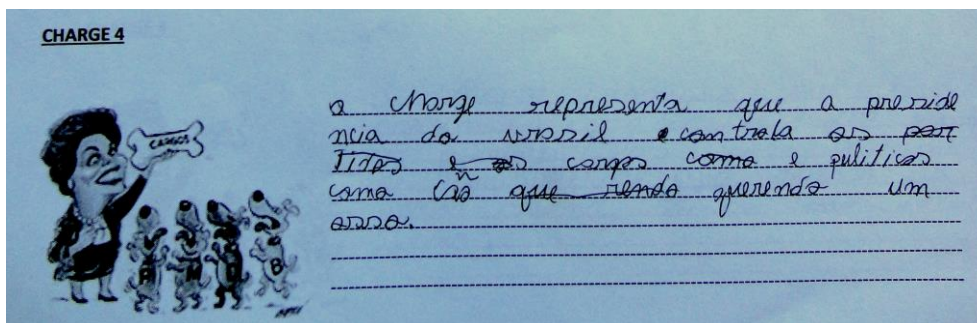 CHARGE 4
CARGOS
P M D B
a charge representa que a preside
ncia do urasil e controla os par
tidos e os cargos como e puliticos
como cão que rendo querendo um
osso.